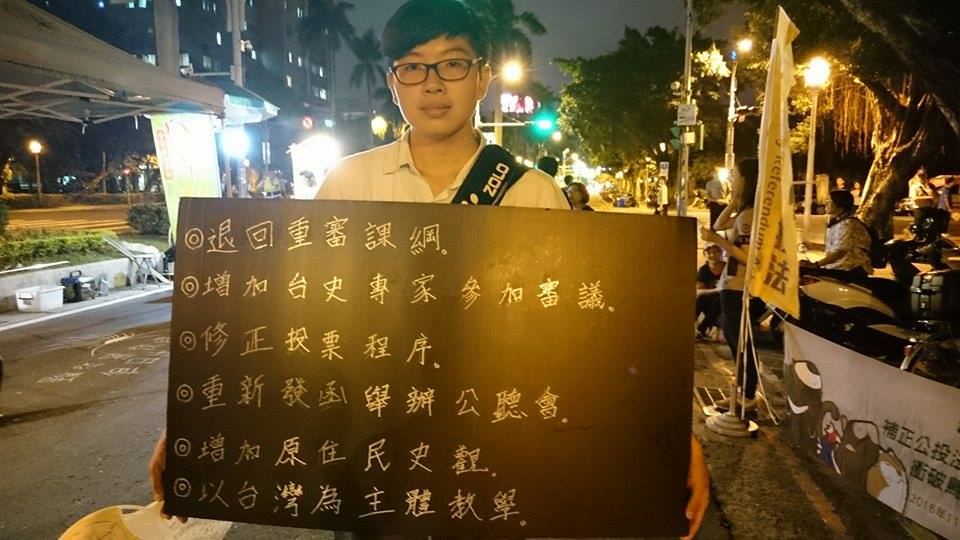 ZOLO
◎退回重審課綱。
◎增加台史專家參加審議。
◎修正投票程序。
◎重新發函舉辦公聽會。
◎增加原住民史觀。
◎以台灣為主體教學。
Referendum
法
補正公投法
衝破